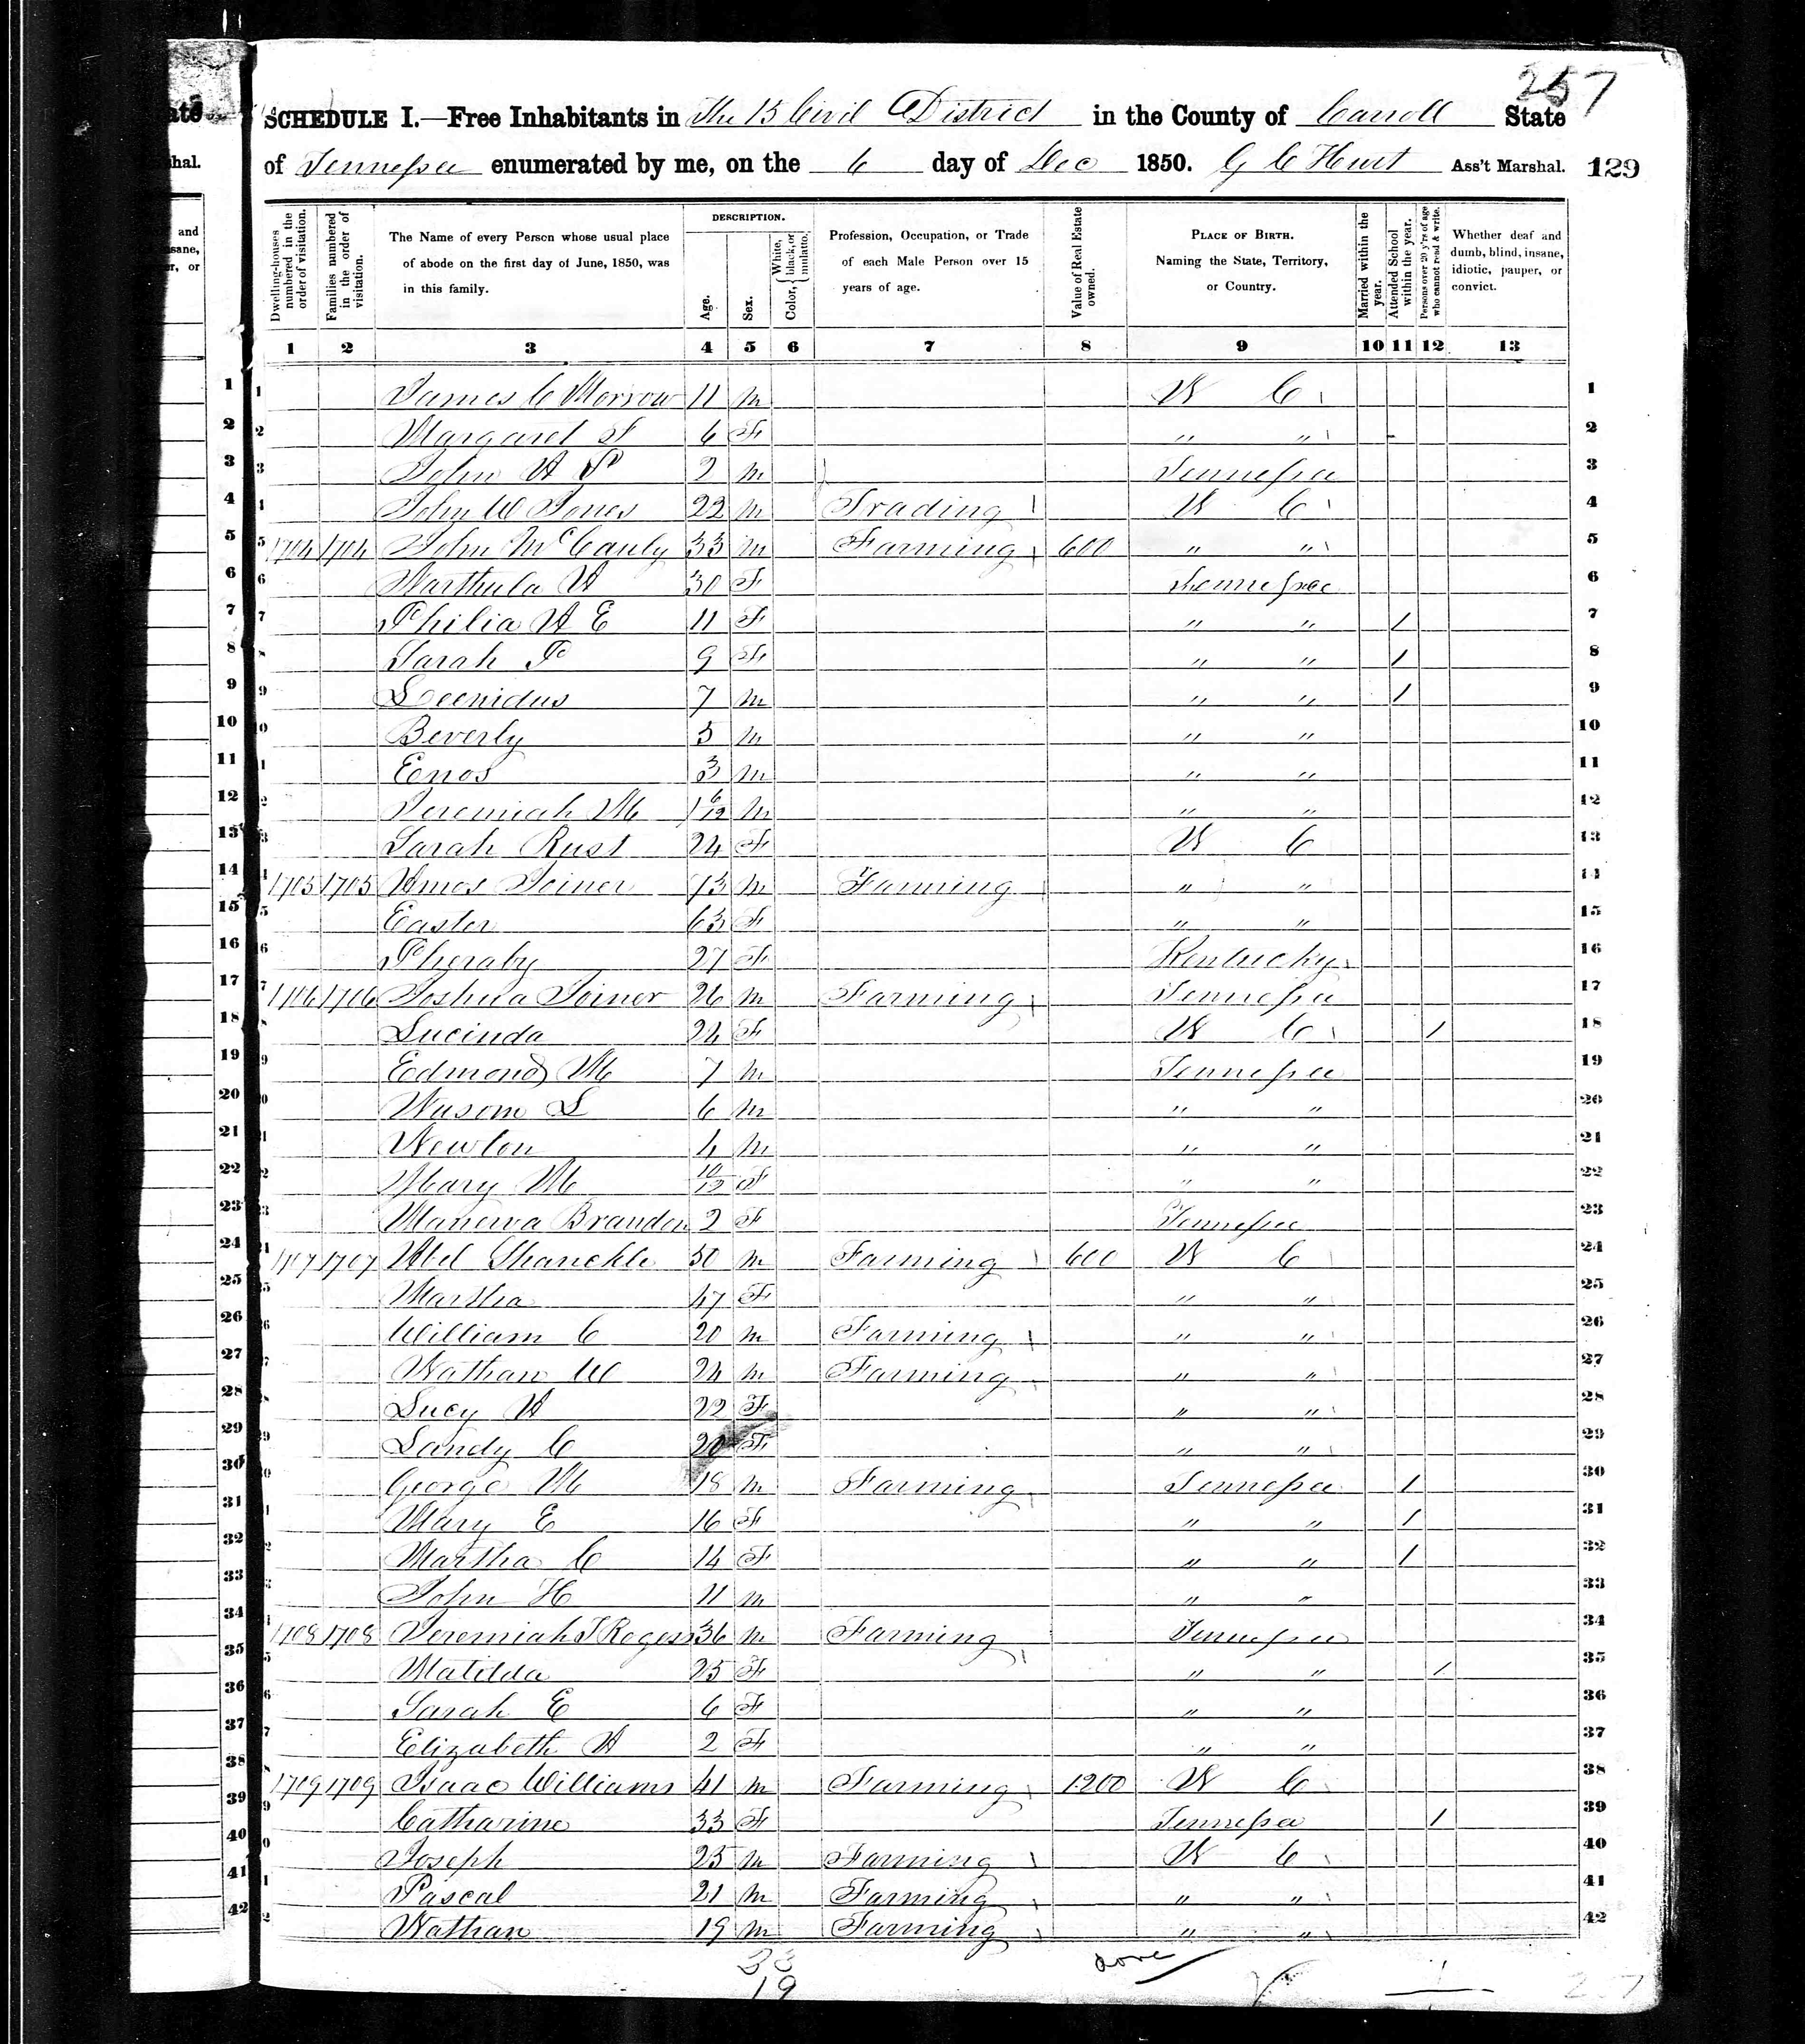 257
SCHEDULE I.—Free Inhabitants in The 13 Civil District in the County of Carroll State
of Tennessee enumerated by me, on the 6 day of Dec 1850. G C Hurt Ass't Marshal. 129
Dwelling-houses numbered in the order of visitation.
Families numbered in the order of visitation.
The Name of every Person whose usual place of abode on the first day of June, 1850, was in this family.
DESCRIPTION.
Age.
Sex.
Color, White, black, or mulatto.
Profession, Occupation, or Trade of each Male Person over 15 years of age.
Value of Real Estate owned.
PLACE OF BIRTH. Naming the State, Territory, or Country.
Married within the year.
Attended School within the year.
Persons over 20 y'rs of age who cannot read & write.
Whether deaf and dumb, blind, insane, idiotic, pauper, or convict.
1 2 3 4 5 6 7 8 9 10 11 12 13
1 James C Morrow 11 M N C 1
2 Margaret F 6 F " " 2
3 John A P 2 M Tennessee 3
4 John W Jones 22 M Trading N C 4
5 1704 1704 John McCauly 33 M Farming 600 " " 5
6 Narthula A 30 F Tennessee 6
7 Philia A E 11 F " " / 7
8 Sarah P 9 F " " / 8
9 Leenidus 7 M " " / 9
10 Beverly 5 M " " 10
11 Enos 3 M " " 11
12 Jeremiah M 1 6/12 M " " 12
13 Sarah Rust 24 F N C 13
14 1705 1705 Amos Joiner 73 M Farming " " 14
15 Easter 63 F " " 15
16 Pheraby 27 F Kentucky 16
17 1706 1706 Joshua Joiner 26 M Farming Tennessee 17
18 Lucinda 24 F N C / 18
19 Edmond M 7 M Tennessee 19
20 Wusom L 6 M " " 20
21 Newton 4 M " " 21
22 Mary M 10/12 F " " 22
23 Manerva Brandon 2 F Tennessee 23
24 1707 1707 Abel Shanckle 50 M Farming 600 N C 24
25 Martha 47 F " " 25
26 William C 20 M Farming " " 26
27 Nathan W 24 M Farming " " 27
28 Lucy A 22 F " " 28
29 Landy C 20 F " " 29
30 George M 18 M Farming Tennessee / 30
31 Mary E 16 F " " / 31
32 Martha C 14 F " " / 32
33 John H 11 M " " 33
34 1708 1708 Jeremiah T Rogers 36 M Farming Tennessee 34
35 Matilda 25 F " " / 35
36 Sarah E 6 F " " 36
37 Elizabeth A 2 F " " 37
38 1709 1709 Isaac Williams 41 M Farming 1200 N C 38
39 Catharine 33 F Tennessee / 39
40 Joseph 23 M Farming N C 40
41 Pascal 21 M Farming " " 41
42 Nathan 19 M Farming " " 42
33
19